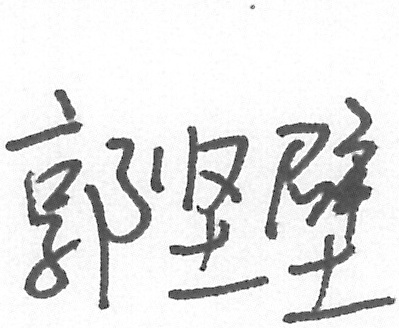 郭坚壁